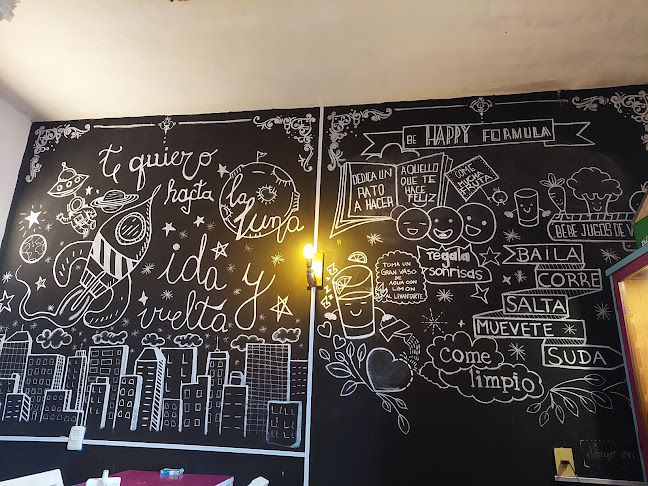 te quiero
hasta
la
luna
ida y
vuelta
BE HAPPY FORMULA
DEDICA UN
RATO
A HACER
AQUELLO
QUE TE
HACE
FELIZ
COME
MUCHA
REGALA
SONRISAS
BEBE JUGOS DE V
TOMA UN
GRAN VASO
DE
AGUA CON
LIMON
AL LEVANTARTE
BAILA
CORRE
SALTA
MUEVETE
SUDA
Come
limpio
dibujo en